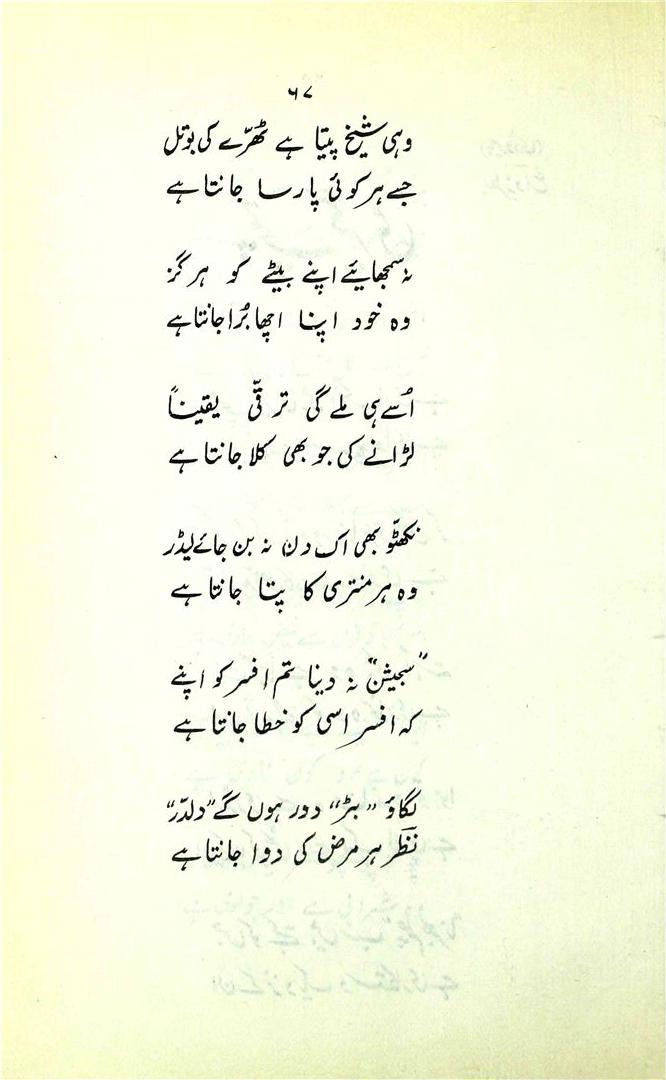 ۶۷
وہی شیخ پیتا ہے ٹھرّے کی بوتل
جسے ہر کوئی پارسا جانتا ہے
نہ سمجھایئے اپنے بیٹے کو ہرگز
وہ خود اپنا اچھا بُرا جانتا ہے
اُسے ہی ملے گی ترقّی یقیناً
لڑانے کی جو بھی کلا جانتا ہے
نکھٹّو بھی اک دن نہ بن جائے لیڈر
وہ ہر منتری کا پتا جانتا ہے
”سجیشن“ نہ دینا تم افسر کو اپنے
کہ افسر اسی کو خطا جانتا ہے
لگاؤ ”بڑ“ دور ہوں گے ”دلدّر“
نظر ہر مرض کی دوا جانتا ہے